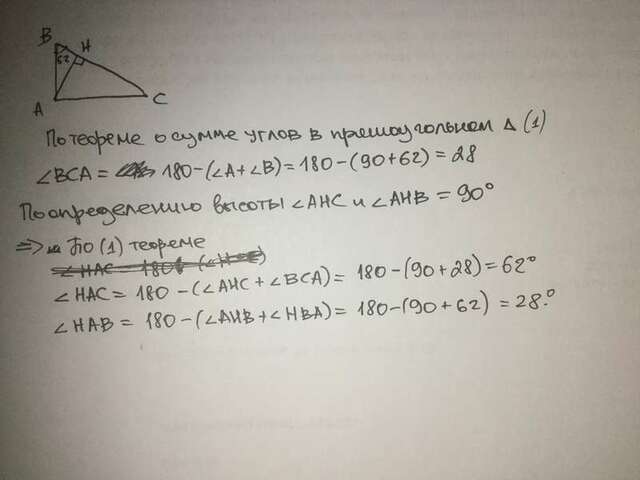 B
62
H
A
C
По теореме о сумме углов в прямоугольном Δ (1)
∠BCA = 180-(∠A+∠B)=180-(90+62)=28
По определению высоты ∠AHC и ∠AHB = 90°
=> По (1) теореме
∠HAC = 180-(∠AHC+∠BCA)= 180-(90+28)=62°
∠HAB = 180-(∠AHB+∠HBA)=180-(90+62)=28°